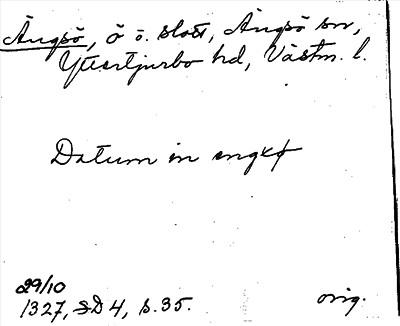 Ängsö, ö o. slott, Ängsö sn,
Yttertjurbo hd, Västm. l.
Datum in engxø
29/10
1327, SD 4, s. 35.
orig.